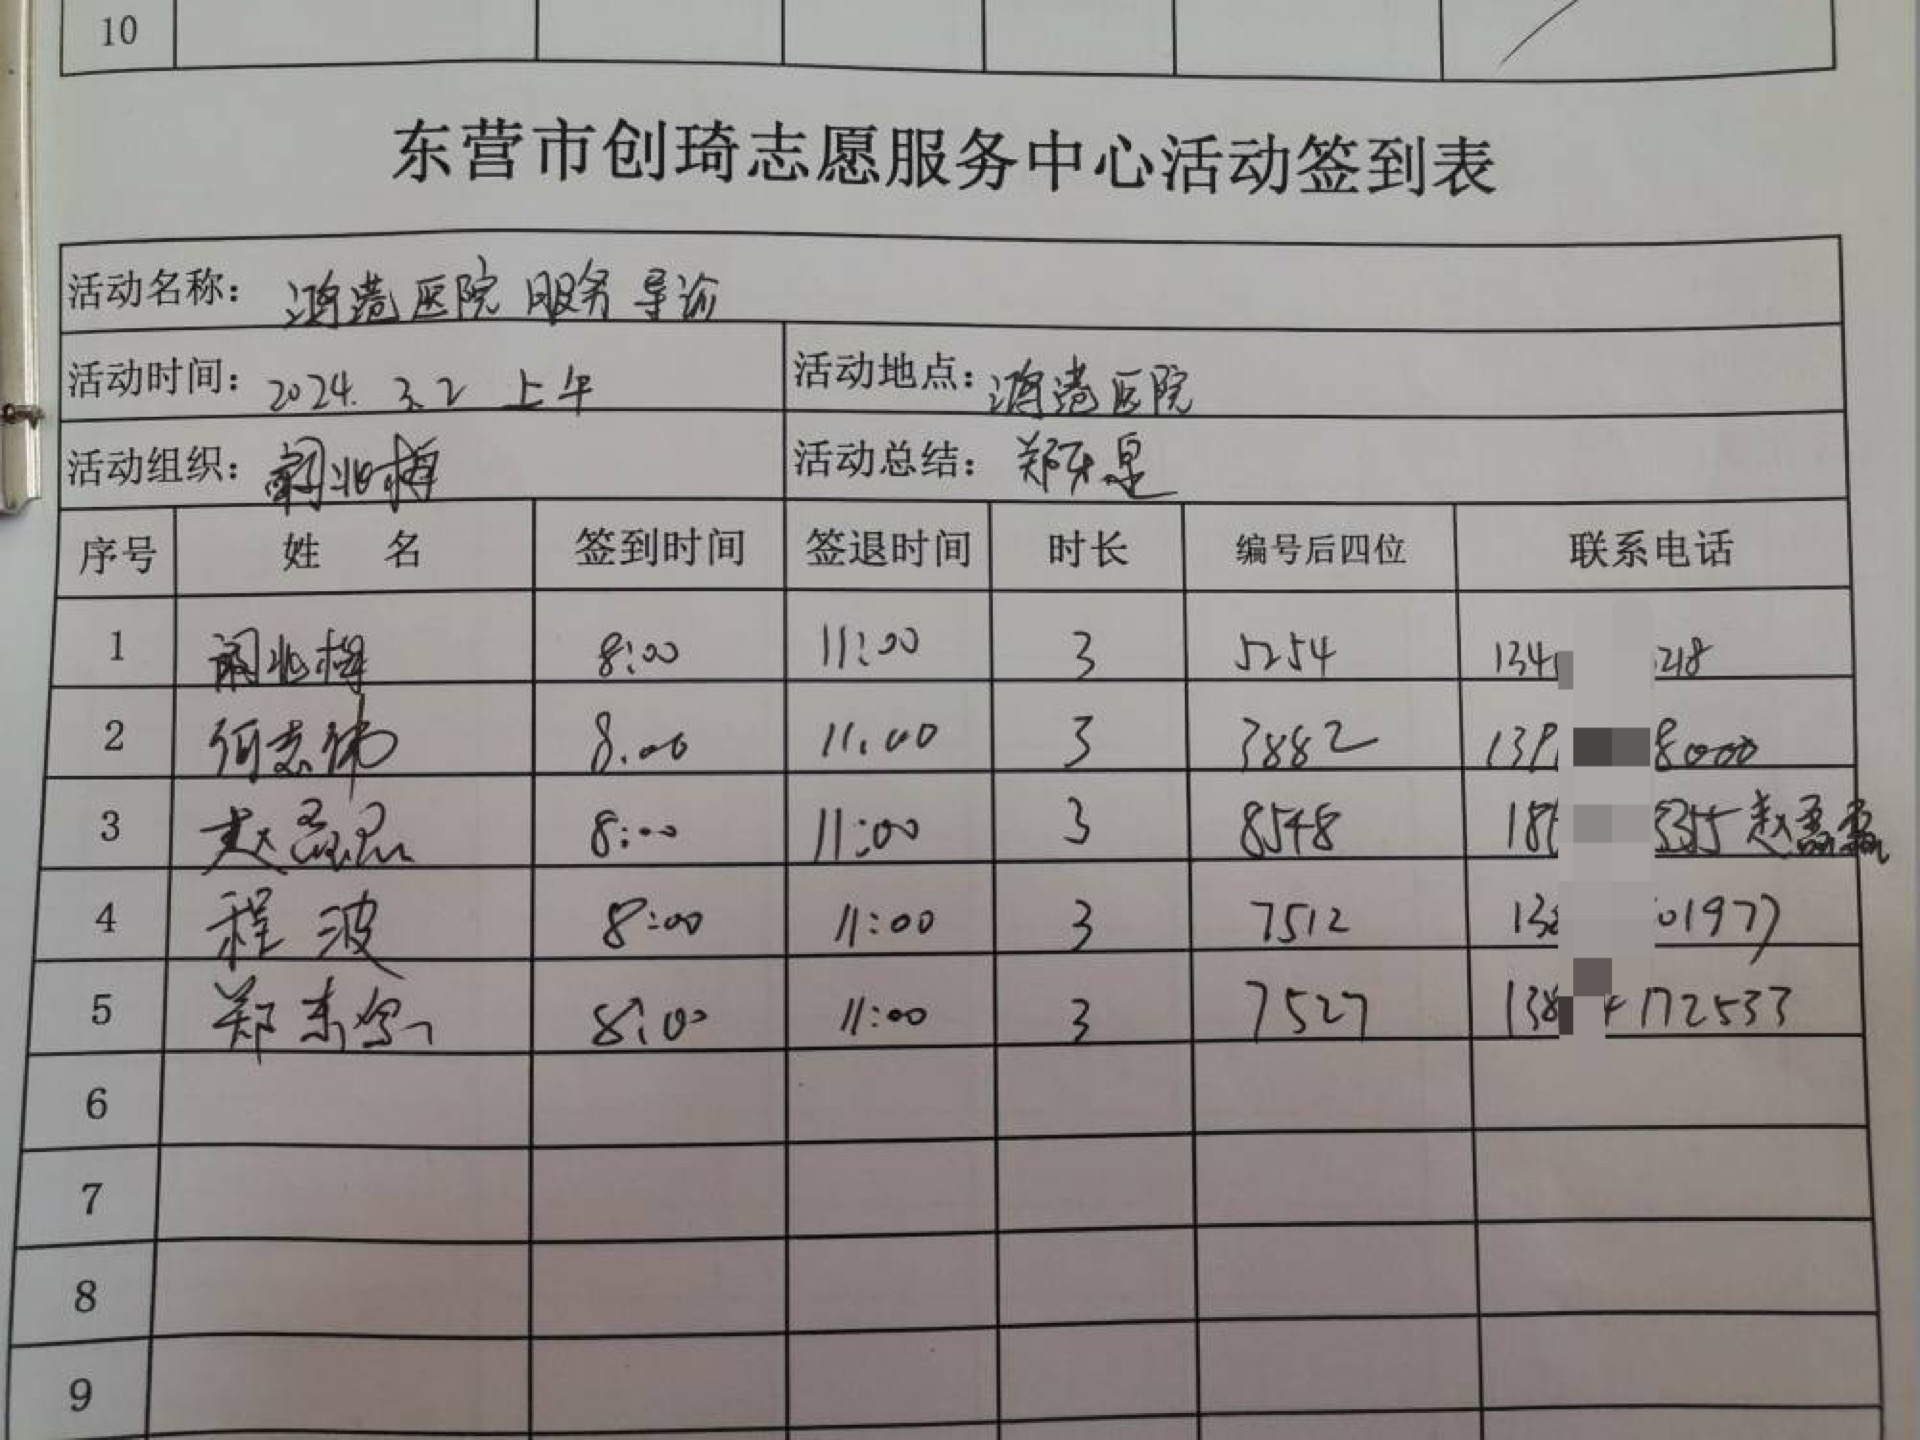 10
东营市创琦志愿服务中心活动签到表
活动名称: 鸿港医院 服务 导诊
活动时间: 2024. 3.2 上午 活动地点: 鸿港医院
活动组织: 活动总结: 郑
序号 姓 名 签到时间 签退时间 时长 编号后四位 联系电话
1 8:00 11:00 3 5254 134 218
2 何志伟 8.00 11.00 3 3882 139 8000
3 赵磊磊 8:00 11:00 3 8548 18 3355 赵磊磊
4 程波 8:00 11:00 3 7512 138 01977
5 郑 8:00 11:00 3 7527 138 172533
6
7
8
9